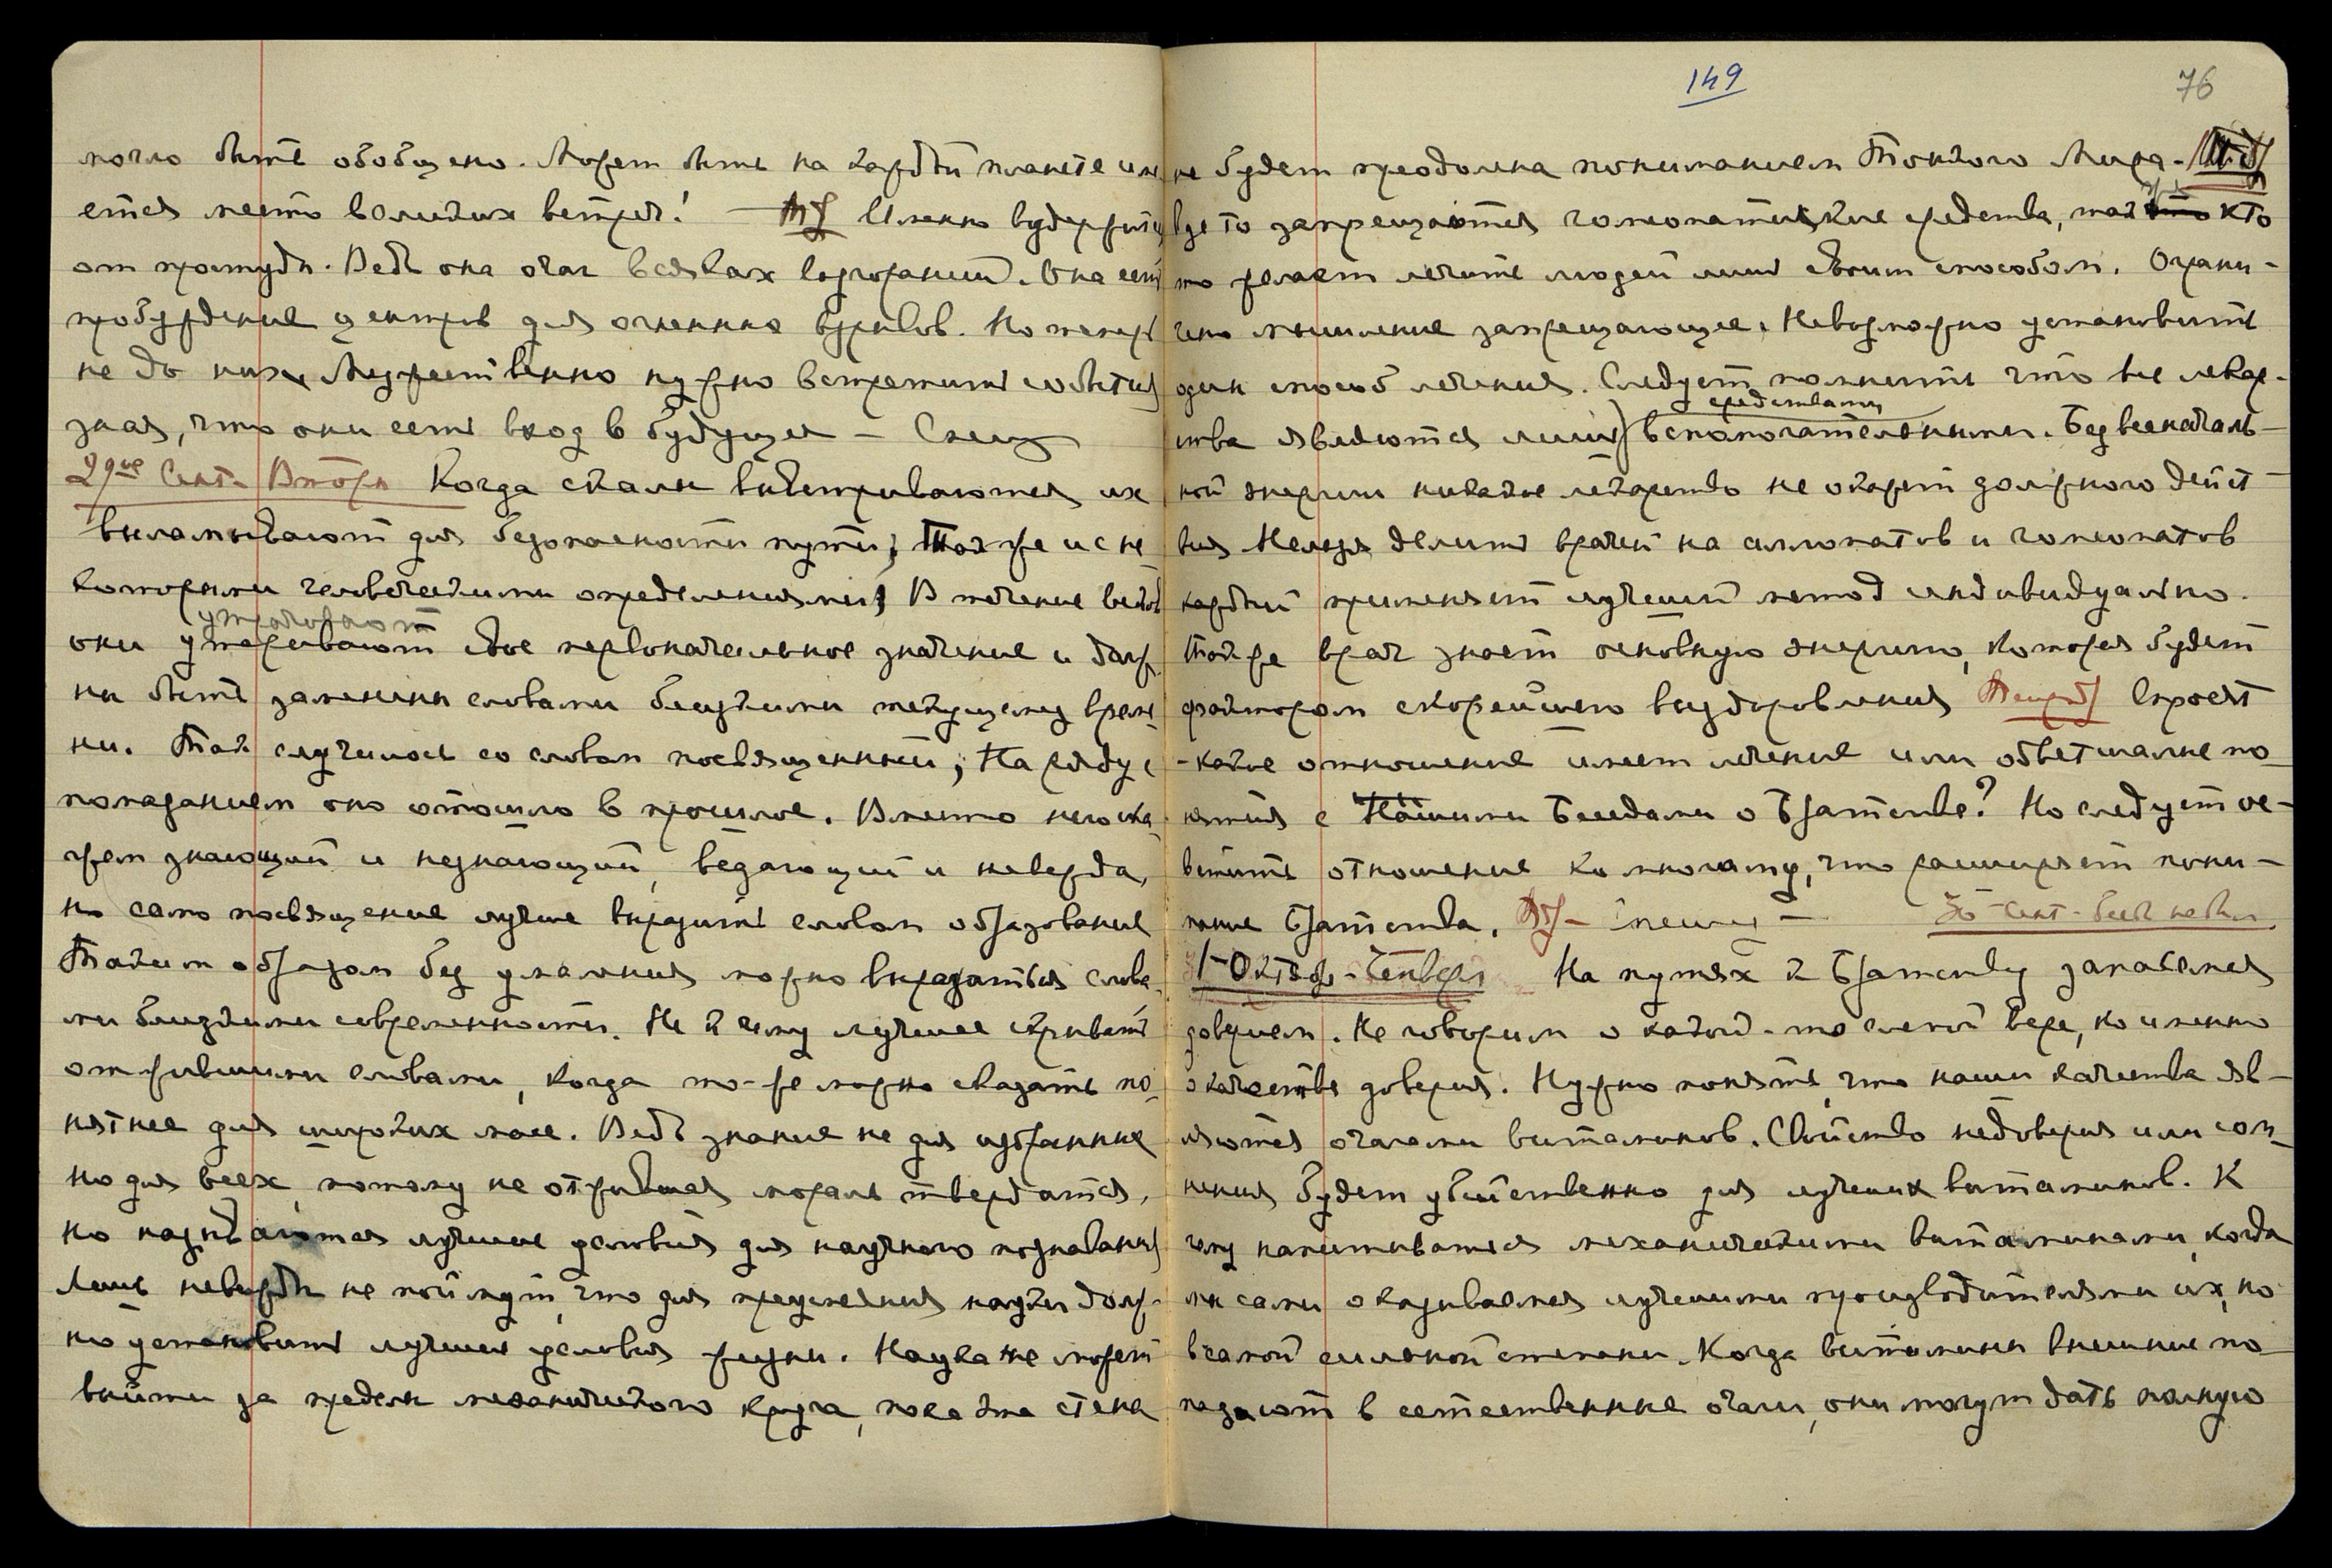 могло быть обобщено. Может быть на каждой планете име
ется место великих встреч! — Именно вудержитесь
от простуды. Ведь она очаг всяких возгораний. Она есть
пробуждение центров для огненных взрывов. Но теперь
не до них. Мужественно нужно встретить события
зная, что они есть вход в будущее — Спешу
29ое Сент. Вторн Когда скалы выветриваются их
выламывают для безопасности пути; Также и с не
которыми человеческими определениями; В течение веков
утрачивают
они утеривают свое первоначальное значение и долж
ны быть заменены словами близкими текущему време
ни. Так случилось со словом посвященный; На ряду с
попаданием оно отошло в прошлое. Вместо него ска
жем знающий и незнающий, ведающий и невежда,
но само посвящение лучше выразить словом образование
Таким образом без умаления можно выразиться слова
ми близкими современности. Не к чему лучшее скрывать
отжившими словами, когда то-же можно сказать по-
нятнее для широких масс. Ведь знание не для избранных
но для всех, потому не отжившая мораль твердится,
но называются лучшие условия для научного познавания
Лишь невежды не поймут, что для преуспеяния науки долж-
но установить лучшие условия жизни. Наука не может
выйти за пределы механического круга, пока эта стена
149
76
не будет преодолена пониманием Тонкого Мира.
Где то запрещаются гомеопатические средства, так кто
то желает лечить людей лишь своим способом. Ограни-
чено мышление запрещающее. Невозможно установить
один способ лечения. Следует помнить что все лекар-
средствами
ства являются лишь вспомогательными. Без всеначаль-
ной энергии никакое лекарство не окажет должного дейст-
вия Нельзя делить врачей на аллопатов и гомеопатов
каждый применяет лучший метод индивидуально.
Также врач знает основную энергию, которая будет
фактором скорейшего выздоровления Спросят
- какое отношение имеет лечение или обветшалые по-
нятия с Нашими Беседами о Братстве? Но следует ос-
ветить отношение ко многому, что расширяет пони-
мание Братства. — Спешу —
30 - Сент - Бесед не был
1-Октябр - Четверг На путях к Братству запасемся
доверием. Не говорим о какой-то слепой вере, но именно
о качестве доверия. Нужно понять, что наши качества яв-
ляются очагами витаминов. Свойство недоверия или сом-
нения будет убийственно для лучших витаминов. К
чему напитываться механическими витаминами, когда
мы сами оказываемся лучшими производителями их, но
в самой сильной степени. Когда витамины внешние по-
падают в естественные очаги, они могут дать полную